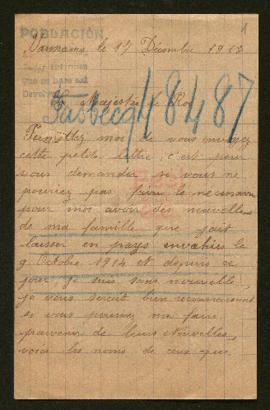 1
POBLACIÓN
le 17 Décembre 1915
Majesté le Roi
18487
Permettez moi de vous envoyez
cette petite lettre, c'est pour
vous demander si vous ne
pourriez pas faire le nécessaire
pour moi avoir des nouvelles
de ma famille que j'ait
laisser en pays envahire le
9 Octobre 1914 et depuis ce
jour je suis sans nouvelle,
je vous serait bien reconnaissant
si vous pourriez me faire
parvenir de leurs nouvelles,
voici les noms de ceux que